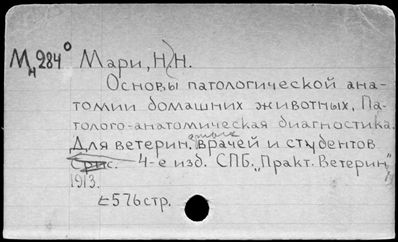 Мн284° Мари, Н.Н.
Основы патологической ана-
томии домашних животных. Па-
толого-анатомическая диагностика.
Для ветерин. врачей и студентов
С рис. 4-е изд. СПБ. „Практ. Ветерин"
1913.
576стр.